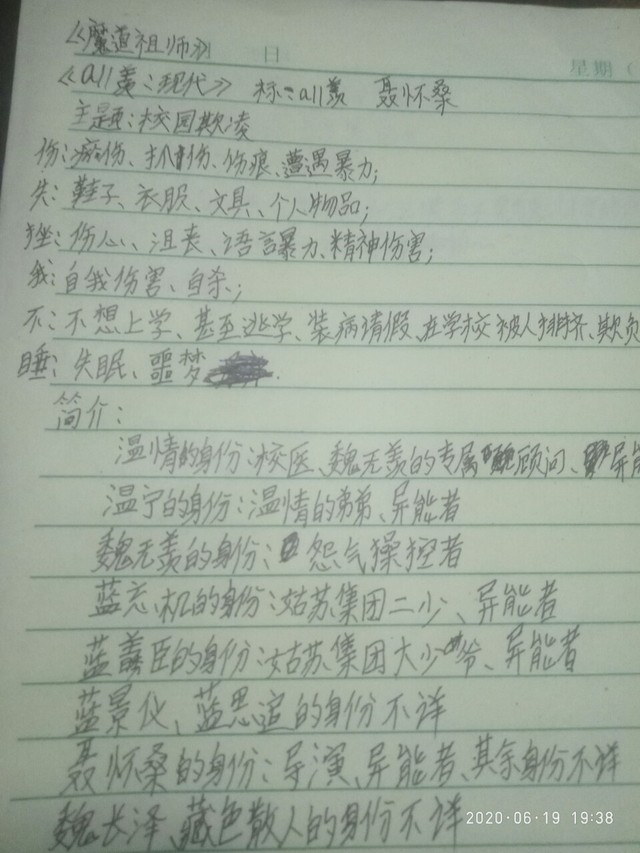 《魔道祖师》
日
星期（
《all羡：现代》 标：all羡 聂怀桑
主题：校园欺凌
伤：瘀伤、抓伤、伤痕、遭遇暴力；
失：鞋子、衣服、文具、个人物品；
挫：伤心、沮丧、语言暴力、精神伤害；
我：自我伤害、自杀；
不：不想上学、甚至逃学、装病请假、在学校被人排挤、欺负
睡：失眠、噩梦
简介：
温情的身份：校医、魏无羡的专属顾问、异能
温宁的身份：温情的弟弟、异能者
魏无羡的身份：怨气操控者
蓝忘机的身份：姑苏集团二少、异能者
蓝羲臣的身份：姑苏集团大少爷、异能者
蓝景仪、蓝思追的身份不详
聂怀桑的身份：导演、异能者、其余身份不详
魏长泽、藏色散人的身份不详
2020·06·19 19:38